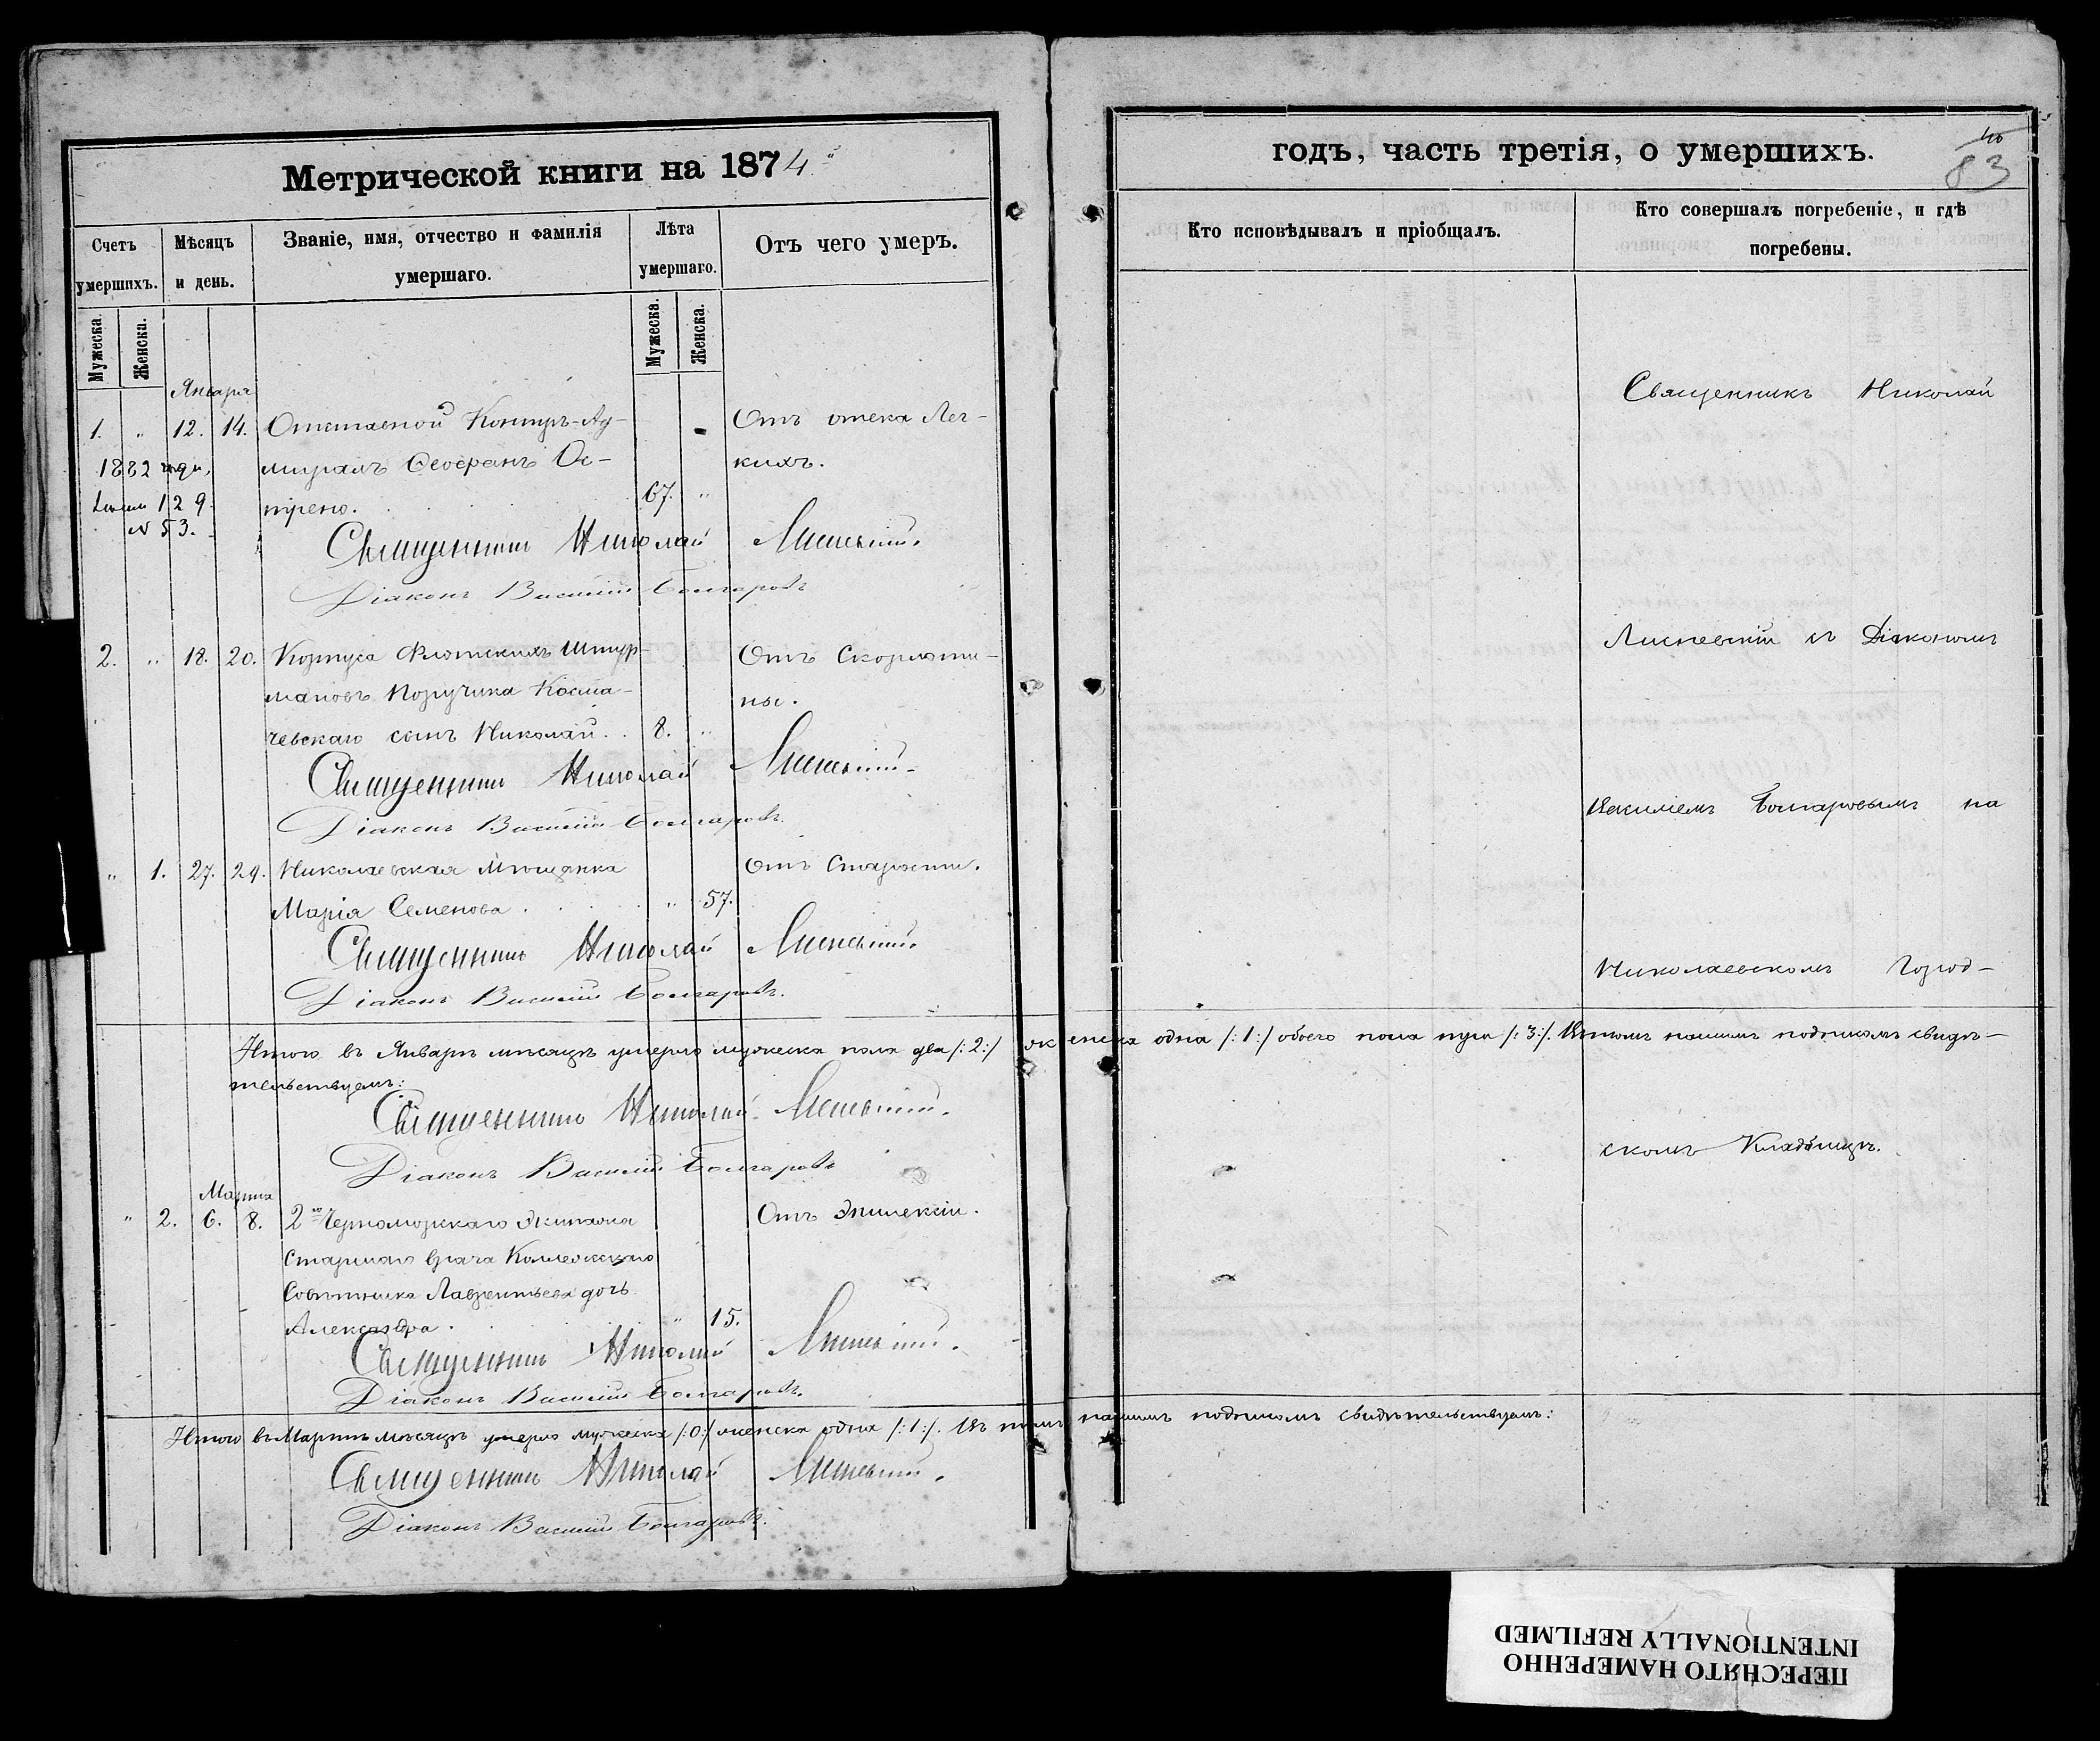 Метрической книги на 1874
годъ, часть третія, о умершихъ.
83
Счетъ умершихъ.
Мѣсяцъ и день.
Званіе, имя, отчество и фамилія умершаго.
Лѣта умершаго.
Отъ чего умеръ.
Кто исповѣдывалъ и пріобщалъ.
Кто совершалъ погребеніе, и гдѣ погребены.
Мужеска.
Женска.
Мужеска.
Женска.
Января
1. " 12. 14. Отставной Контръ-Ад- Отъ отека Лег-
1882 года, миралъ Ос- кихъ.
129 трено. 67. "
N 53.
Священникъ Николай Лисневскій.
Діаконъ Василій Болгаровъ
2. " 18. 20. Корпуса Флотскихъ Штур- Отъ Скорлати-
мановъ Поручика Коста- ны.
чевскаго сынъ Николай. . 8. "
Священникъ Николай Лисневскій.
Діаконъ Василій Болгаровъ.
" 1. 27. 29. Николаевская Мѣщанка Отъ Старости.
Марія Семенова . . . . " 57.
Священникъ Николай Лисневскій.
Діаконъ Василій Болгаровъ.
Итого въ Январѣ мѣсяцѣ умерло мужеска пола два /:2:/ женска одна /:1:/ обоего пола три /:3:/. Въ томъ нашимъ подписомъ свидѣ-
тельствуемъ:
Священникъ Николай Лисневскій.
Діаконъ Василій Болгаровъ
Марта
" 2. 6. 8. 2го Черноморскаго Экипажа Отъ Эпилексіи.
Старшаго врача Коллежскаго
Совѣтника Лаврентьева дочь
Александра . " 15.
Священникъ Николай Лисневскій.
Діаконъ Василій Болгаровъ.
Итого въ Мартѣ мѣсяцѣ умерло мужеска /:0:/ женска одна /:1:/. Въ томъ нашимъ подписомъ свидѣтельствуемъ:
Священникъ Николай Лисневскій.
Діаконъ Василій Болгаровъ.
Священникъ Николай
Лисневскій съ Діакономъ
Василіемъ Болгаровымъ на
Николаевскомъ Город-
скомъ Кладбищѣ.
ПЕРЕСНЯТО НАМЕРЕННО
INTENTIONALLY REFILMED